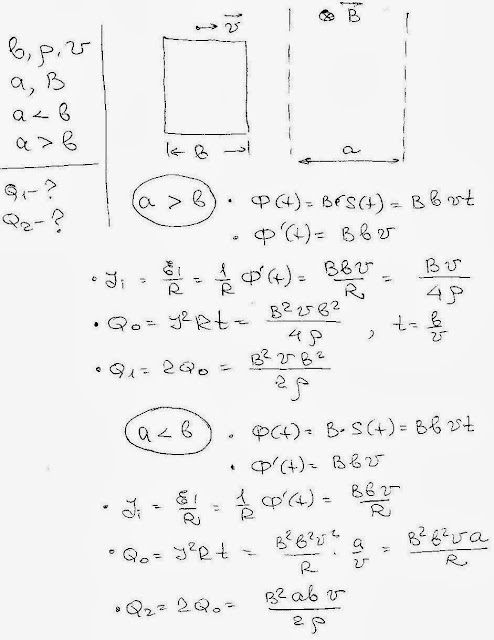 в, ρ, v
a, B
a < в
a > в
Q₁ - ?
Q₂ - ?
→ v⃗
⊗ B⃗
в
a
a > в
• Φ(t) = B·S(t) = Bвvt
• Φ'(t) = Bвv
• Ji = Ei/R = 1/R Φ'(t) = Bвv/R = Bv/4ρ
• Q₀ = J²Rt = B²vв²/4ρ , t = в/v
• Q₁ = 2Q₀ = B²vв²/2ρ
a < в
• Φ(t) = B·S(t) = Bвvt
• Φ'(t) = Bвv
• Ji = Ei/R = 1/R Φ'(t) = Bвv/R
• Q₀ = J²Rt = B²в²v²/R · a/v = B²в²va/R
• Q₂ = 2Q₀ = B²aвv/2ρ